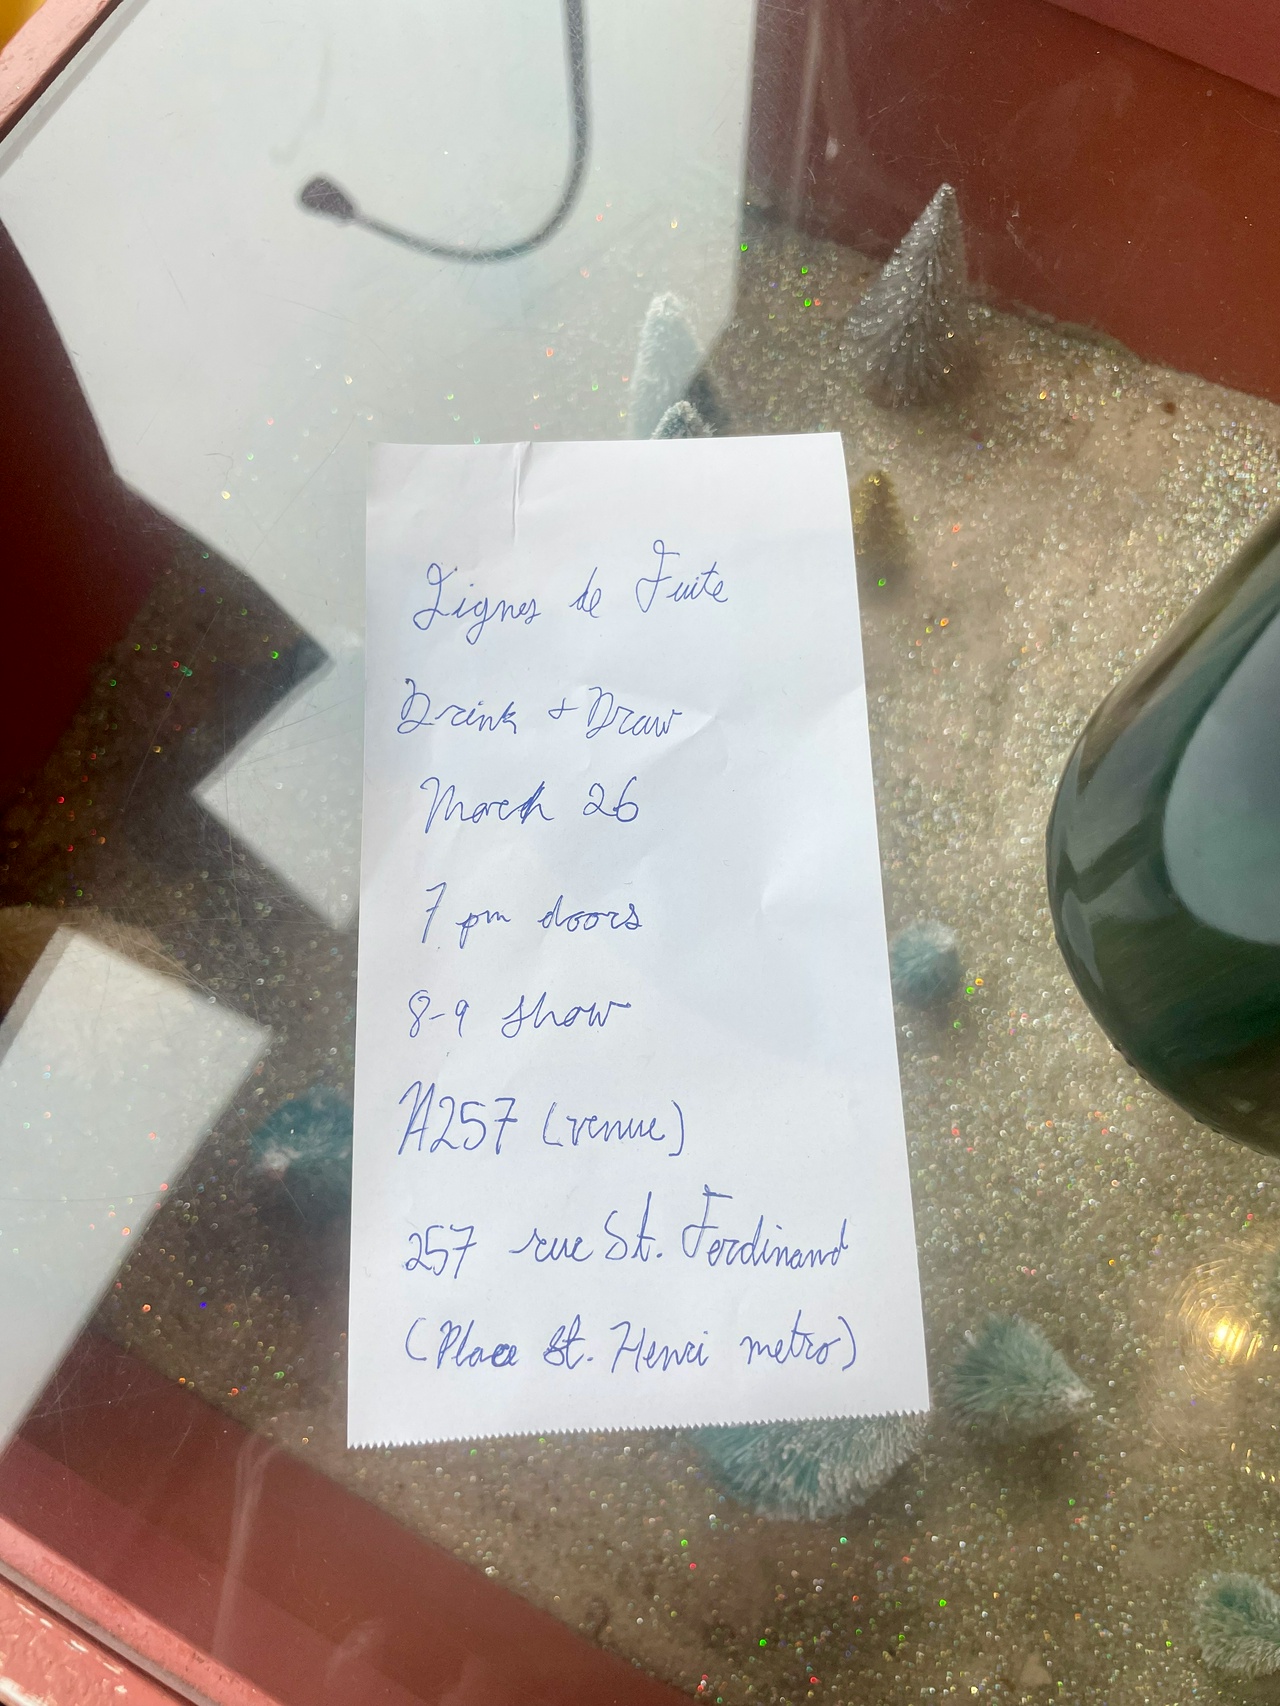 Lignes de Fuite
Drink + Draw
March 26
7 pm doors
8-9 show
A257 (venue)
257 rue St. Ferdinand
(Place St. Henri metro)